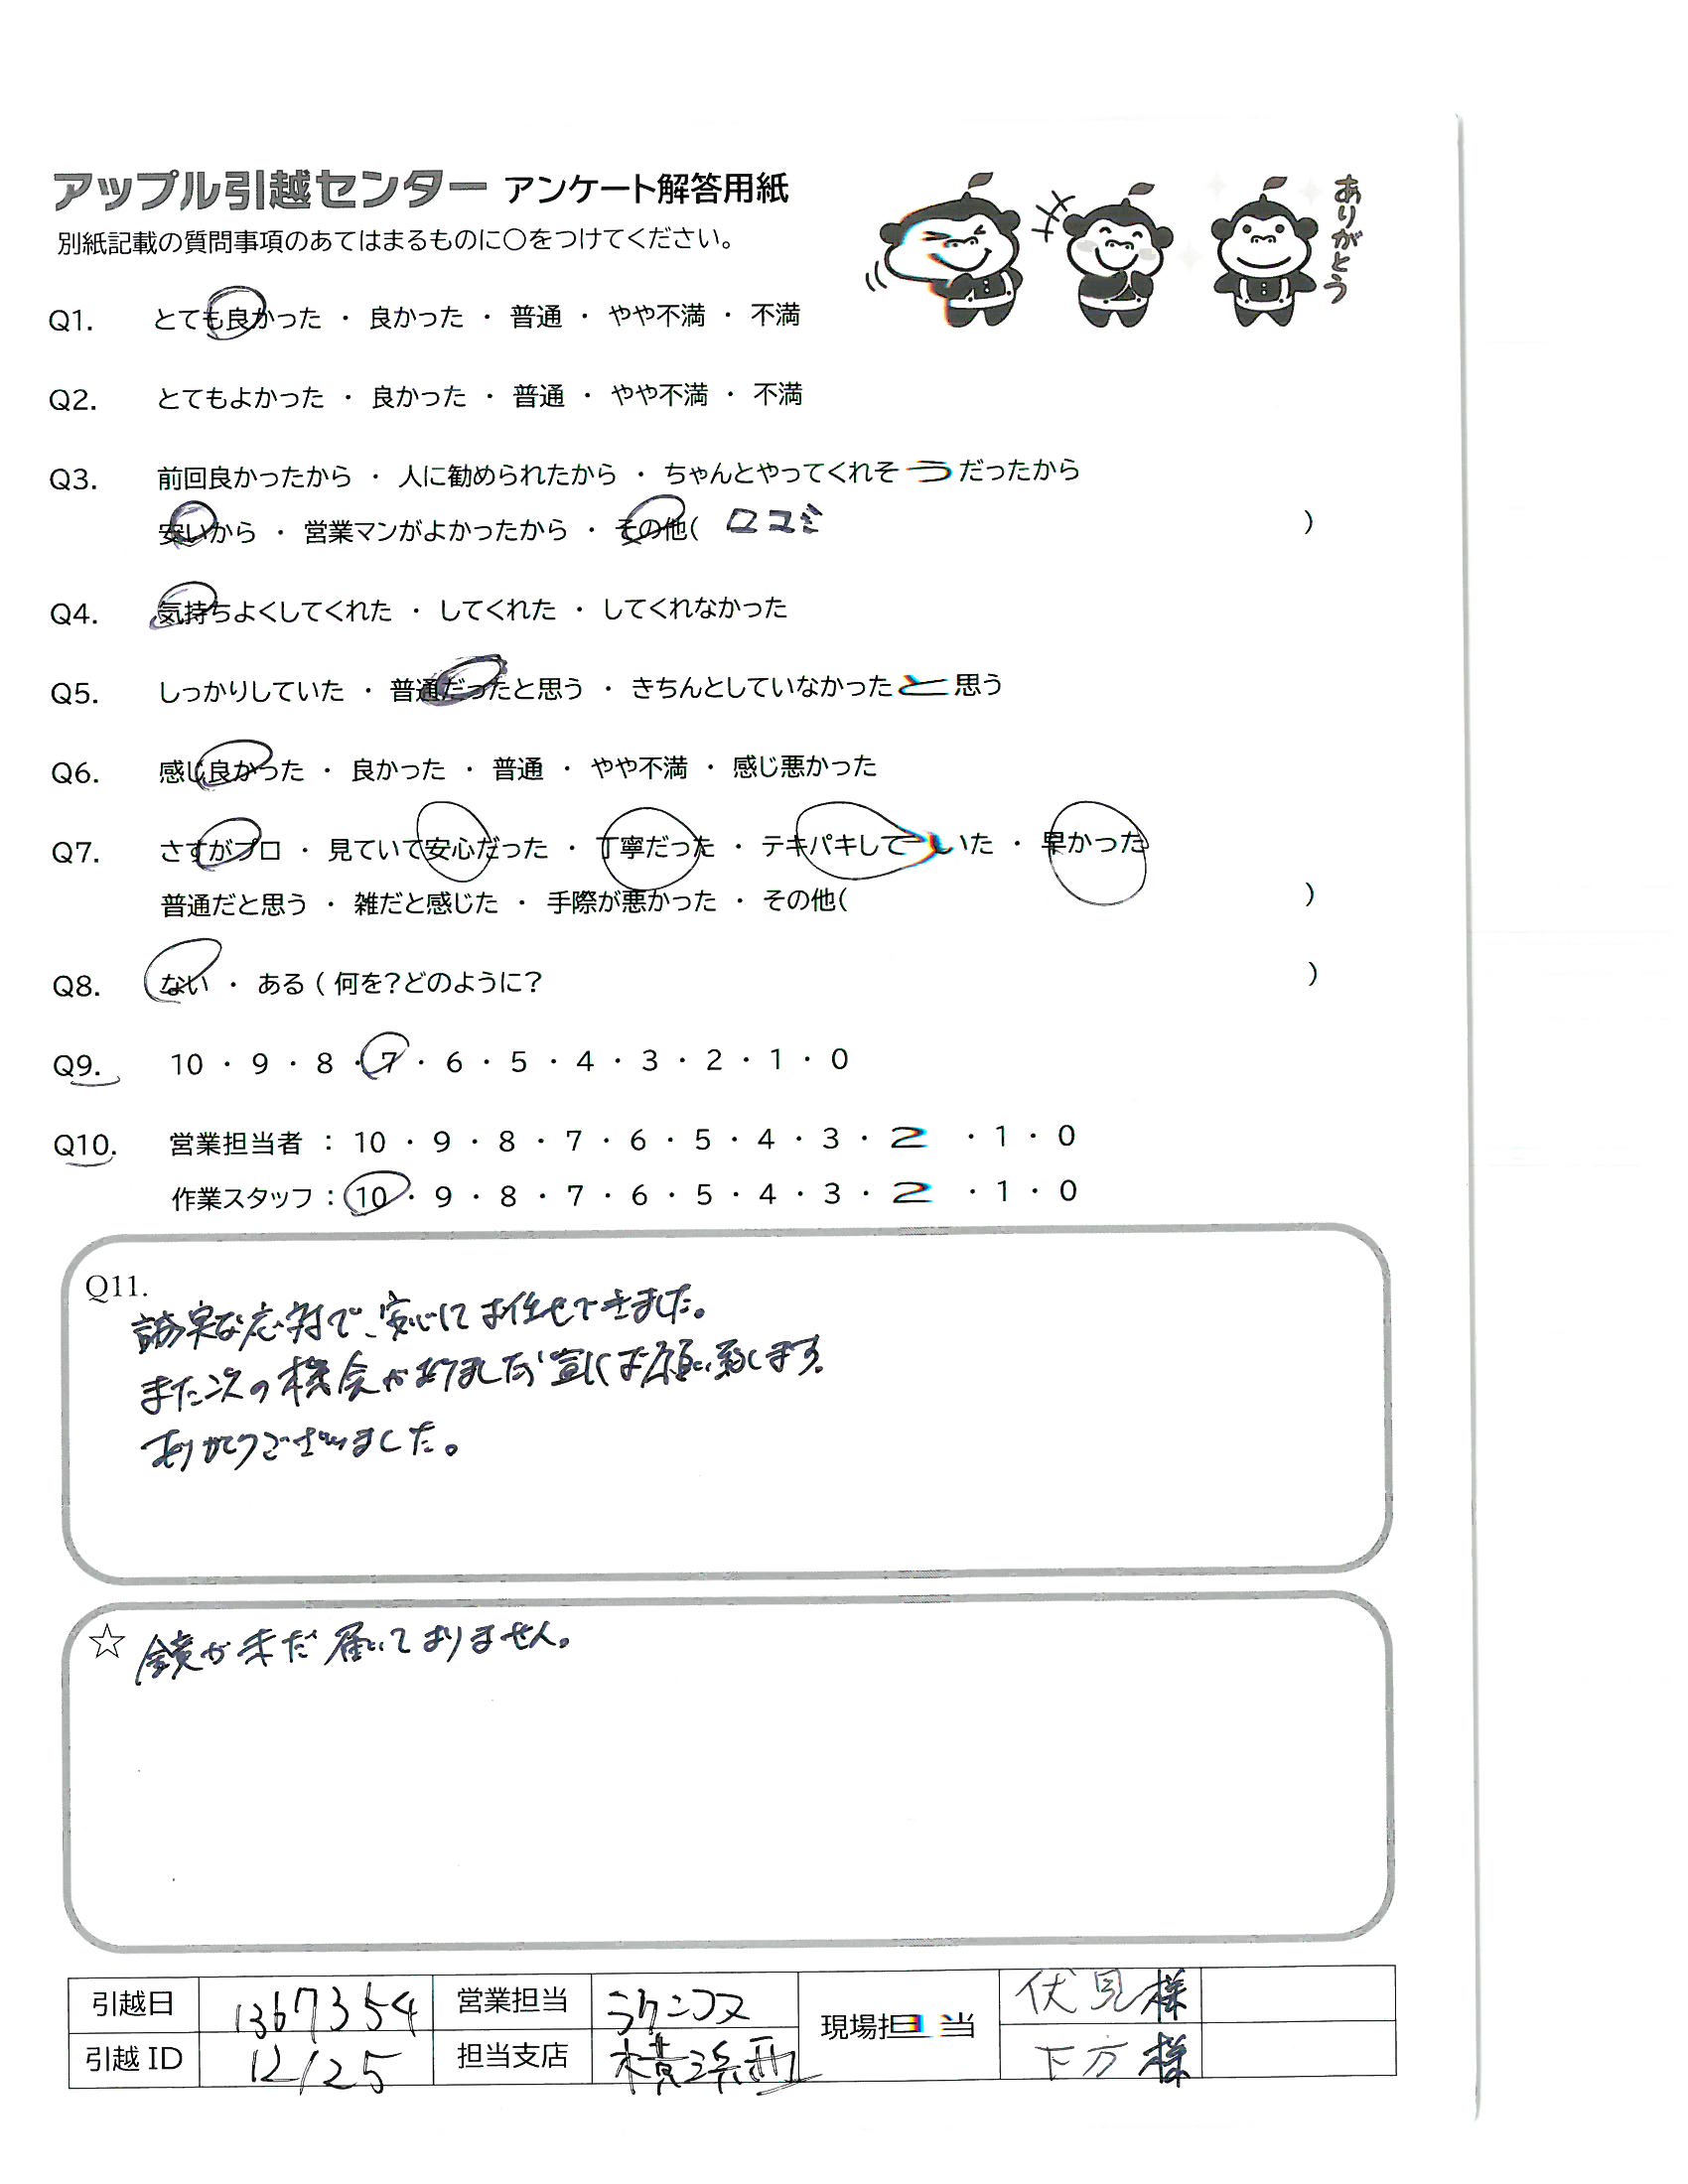 アップル引越センター アンケート解答用紙
別紙記載の質問事項のあてはまるものに○をつけてください。
ありがとう
Q1. とても良かった ・ 良かった ・ 普通 ・ やや不満 ・ 不満
Q2. とてもよかった ・ 良かった ・ 普通 ・ やや不満 ・ 不満
Q3. 前回良かったから ・ 人に勧められたから ・ ちゃんとやってくれそうだったから
安いから ・ 営業マンがよかったから ・ その他( 口コミ )
Q4. 気持ちよくしてくれた ・ してくれた ・ してくれなかった
Q5. しっかりしていた ・ 普通だったと思う ・ きちんとしていなかったと思う
Q6. 感じ良かった ・ 良かった ・ 普通 ・ やや不満 ・ 感じ悪かった
Q7. さすがプロ ・ 見ていて安心だった ・ 丁寧だった ・ テキパキしていた ・ 早かった
普通だと思う ・ 雑だと感じた ・ 手際が悪かった ・ その他( )
Q8. ない ・ ある ( 何を?どのように? )
Q9. 10 ・ 9 ・ 8 ・ 7 ・ 6 ・ 5 ・ 4 ・ 3 ・ 2 ・ 1 ・ 0
Q10. 営業担当者 : 10 ・ 9 ・ 8 ・ 7 ・ 6 ・ 5 ・ 4 ・ 3 ・ 2 ・ 1 ・ 0
作業スタッフ : 10 ・ 9 ・ 8 ・ 7 ・ 6 ・ 5 ・ 4 ・ 3 ・ 2 ・ 1 ・ 0
Q11.
誠実な応対で、安心してお任せできました。
また次の機会がありましたら宜しくお願い致します。
ありがとうございました。
☆ 鏡が未だ届いておりません。
引越日 1367354 営業担当 現場担当 伏見様
引越ID 12/25 担当支店 横浜西 下方様